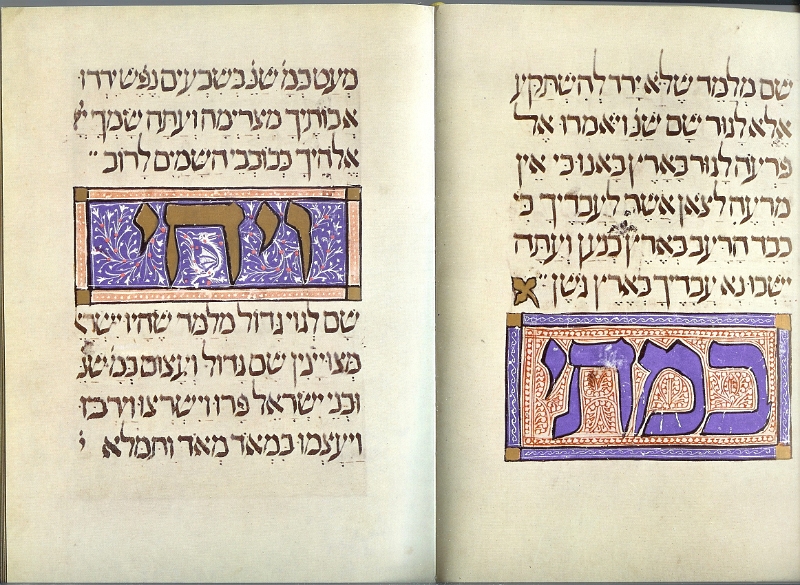 שם מלמד שלא ירד להשתקע
אלא לגור שם שנ' ויאמרו אל
פרעה לגור בארץ באנו כי אין
מרעה לצאן אשר לעבדיך כי
כבד הרעב בארץ כנען ועתה
ישבו נא עבדיך בארץ גשן
במתי
מעט כמ' שנ' בשבעים נפש ירדו
אבותיך מצרימה ועתה שמך
אלהיך ככוכבי השמים לרוב
ויהי
שם לגוי גדול מלמד שהיו ישרא
מצויינין שם גדול ועצום כמ' שנ'
ובני ישראל פרו וישרצו וירבו
ויעצמו במאד מאד ותמלא